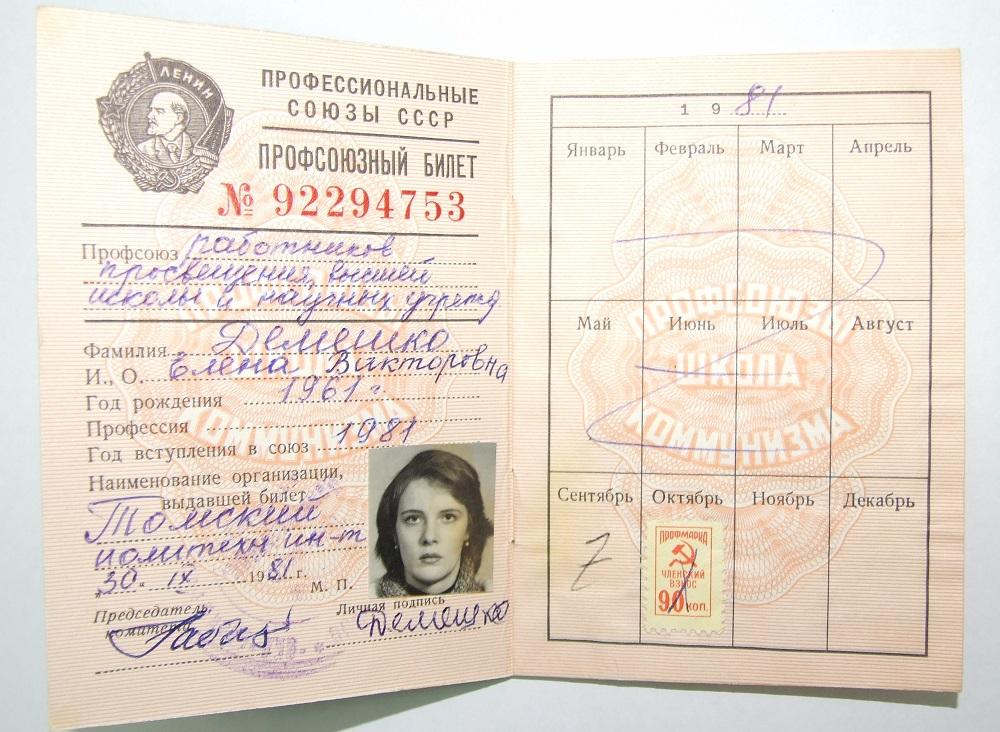 ЛЕНИН
ПРОФЕССИОНАЛЬНЫЕ
СОЮЗЫ СССР
ПРОФСОЮЗНЫЙ БИЛЕТ
№ 92294753
Профсоюз работников
просвещения, высшей
школы и научных учрежд.
Фамилия Демешко
И., О. Елена Викторовна
Год рождения 1961 г.
Профессия
Год вступления в союз 1981
Наименование организации,
выдавшей билет
Томский
политехн ин-т
„30" IX 1981 г. М. П.
Председатель
комитета
Личная подпись
Демешко
1981
Январь Февраль Март Апрель
Май Июнь Июль Август
ПРОФСОЮЗЫ
ШКОЛА
КОММУНИЗМА
Сентябрь Октябрь Ноябрь Декабрь
ПРОФМАРКА
ЧЛЕНСКИЙ
ВЗНОС
90 коп.